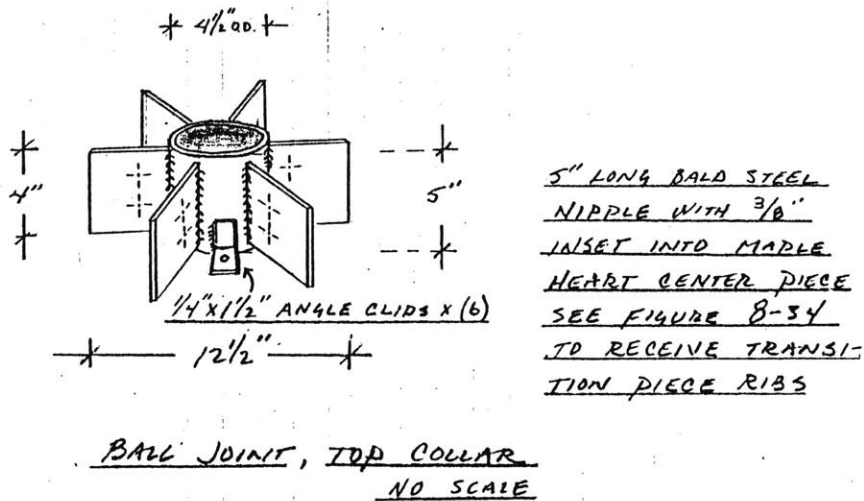 4 1/2" O.D.
4"
5"
1/4" X 1 1/2" ANGLE CLIPS X (6)
12 1/2"
5" LONG BALD STEEL
NIPPLE WITH 3/8"
INSET INTO MAPLE
HEART CENTER PIECE
SEE FIGURE 8-34
TO RECEIVE TRANSI-
TION PIECE RIBS
BALL JOINT, TOP COLLAR
NO SCALE